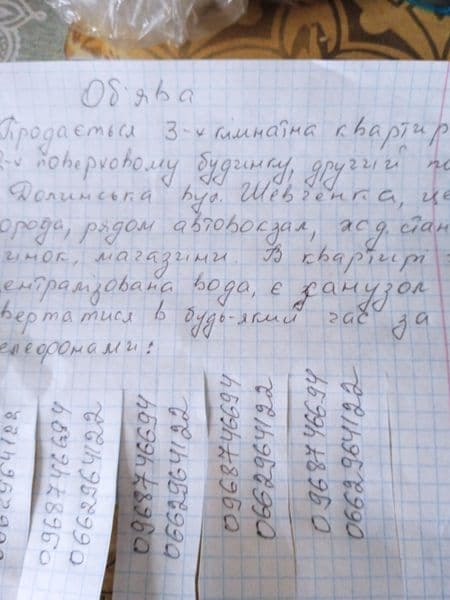 Об'ява
Продається 3-х кімнаїна квартир
2-х поверховому будинку, другий по
Долинська вул. Шевченка, це
орода, рядом автовокзал, жд. стан
инок, магазини. В квартирі
ентралізована вода, є санузол
вертатися в будь-який час за
елефонами:
0662964122
0968746694
0662964122
0968746694
0662964122
0968746694
0662964122
0968746694
0662964122